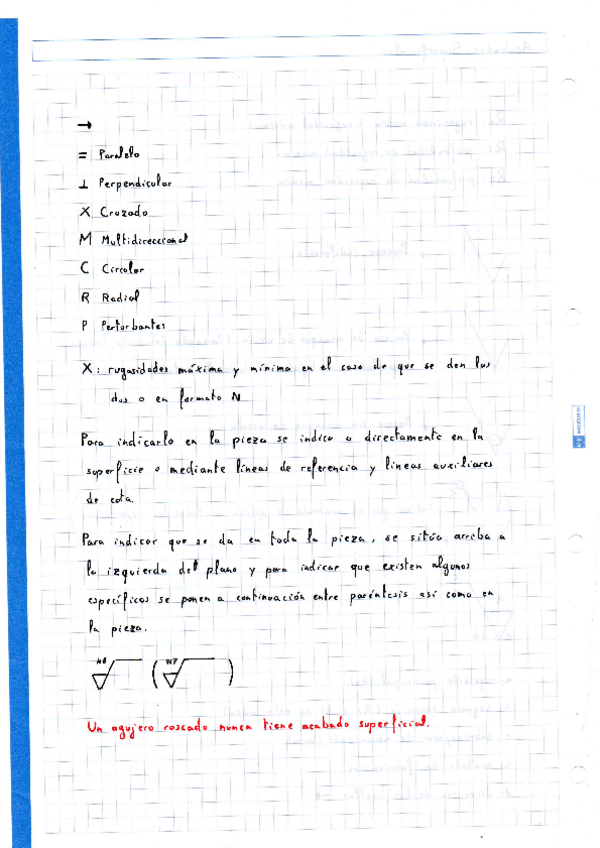 →
= Paralelo
⊥ Perpendicular
X Cruzado
M Multidireccional
C Circular
R Radial
P Perturbantes
X: rugosidades máxima y mínima en el caso de que se den las
dos o en formato N
Para indicarlo en la pieza se indica o directamente en la
superficie o mediante líneas de referencia y líneas auxiliares
de cota.
Para indicar que se da en toda la pieza, se sitúa arriba a
la izquierda del plano y para indicar que existen algunos
específicos se ponen a continuación entre paréntesis así como en
la pieza.
N8 (N7)
Un agujero roscado nunca tiene acabado superficial.